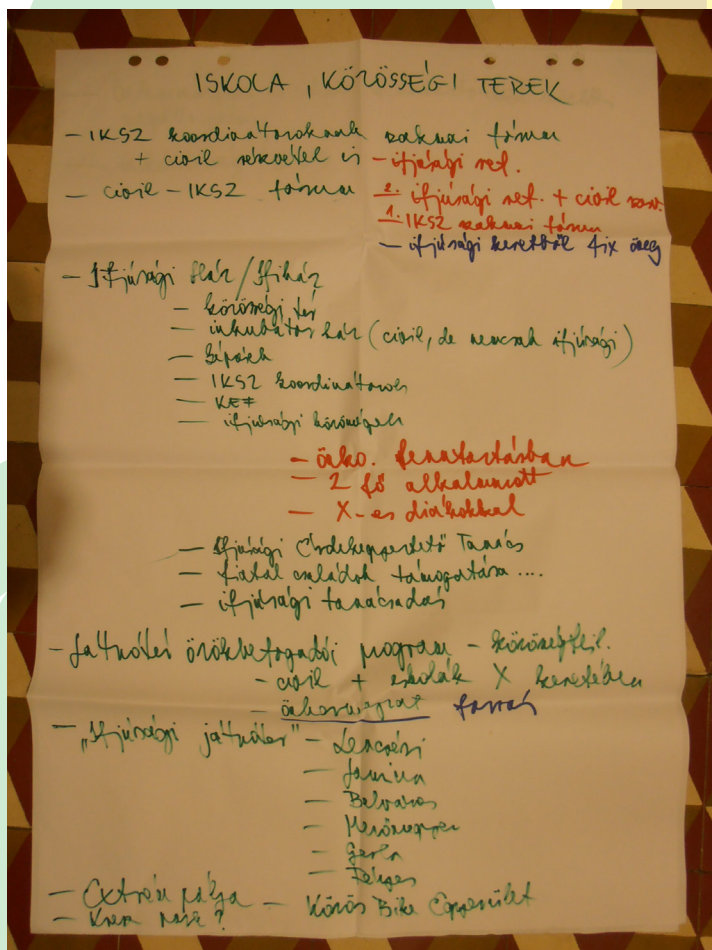 ISKOLA, KÖZÖSSÉGI TEREK
- IKSZ koordinátoroknak szakmai fórum
+ civil részvétel is - ifjúsági ref.
- civil - IKSZ fórum 2. ifjúsági ref. + civil szerv.
1. IKSZ szakmai fórum
- ifjúsági keretből fix összeg
- Ifjúsági Ház / Ifiház
- közösségi tér
- inkubátor ház (civil, de nemcsak ifjúsági)
- képzések
- IKSZ koordinátorok
- KEF
- ifjúsági közösségek
- önko. fenntartásban
- 2 fő alkalmazott
- X-es diákokkal
- Ifjúsági Érdekegyeztető Tanács
- fiatal családok támogatása ....
- ifjúsági tanácsadás
- Játszótér örökbefogadói program - közösségfejl.
- civil + iskolák X keretében
- önkormányzat forrás
- „Ifjúsági játszótér" - Lencsési
- Jamina
- Belváros
- Mezőmegyer
- Gerla
- Fényes
- Extrém pálya - Körös Bike Egyesület
- Krém ?